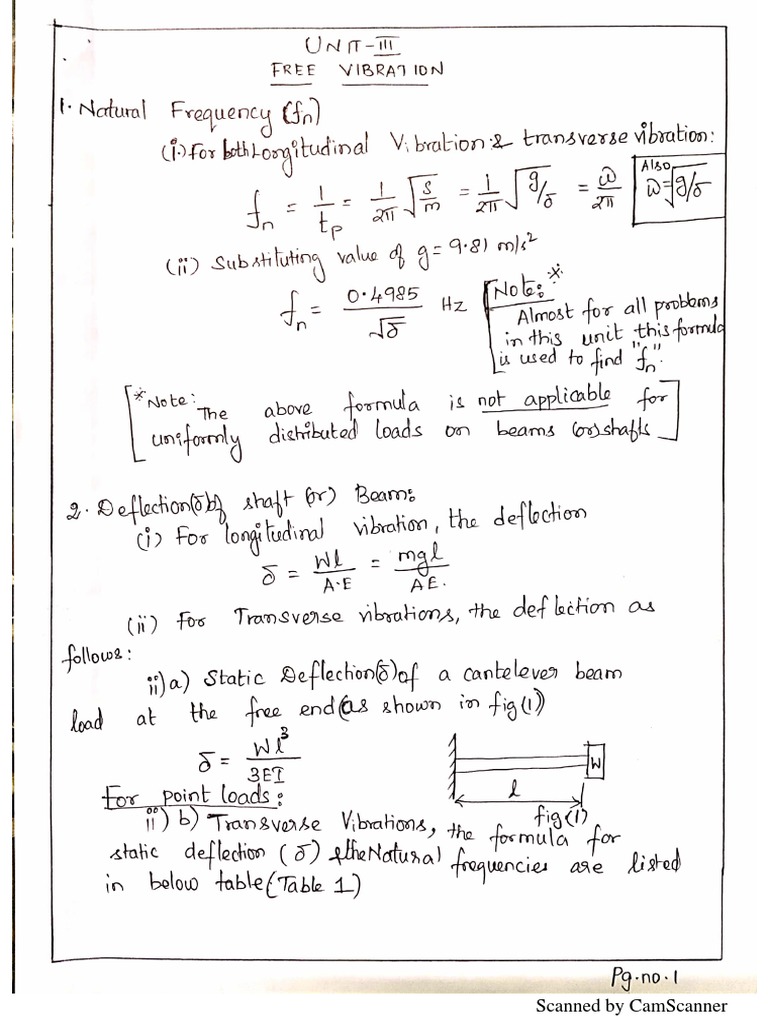 UNIT-III
FREE VIBRATION
1. Natural Frequency (fn)
(i) For both Longitudinal Vibration & transverse vibration:
fn = 1/tp = 1/2π √(s/m) = 1/2π √(g/δ) = ω/2π
Also
ω = √(g/δ)
(ii) Substituting value of g = 9.81 m/s²
fn = 0.4985/√δ Hz
Note: *
Almost for all problems
in this unit this formula
is used to find "fn".
*Note: The above formula is not applicable for
uniformly distributed loads on beams (or) shafts
2. Deflection(δ) of shaft (or) Beam:
(i) For longitudinal vibration, the deflection
δ = Wl/A.E = mgl/AE.
(ii) For Transverse vibrations, the deflection as
follows:
ii)a) Static Deflection(δ) of a cantelever beam
load at the free end (as shown in fig(1))
δ = Wl³/3EI
W
l
fig(1)
For point loads:
ii) b) Transverse Vibrations, the formula for
static deflection (δ) & the Natural frequencies are listed
in below table (Table 1)
Pg.no.1
Scanned by CamScanner